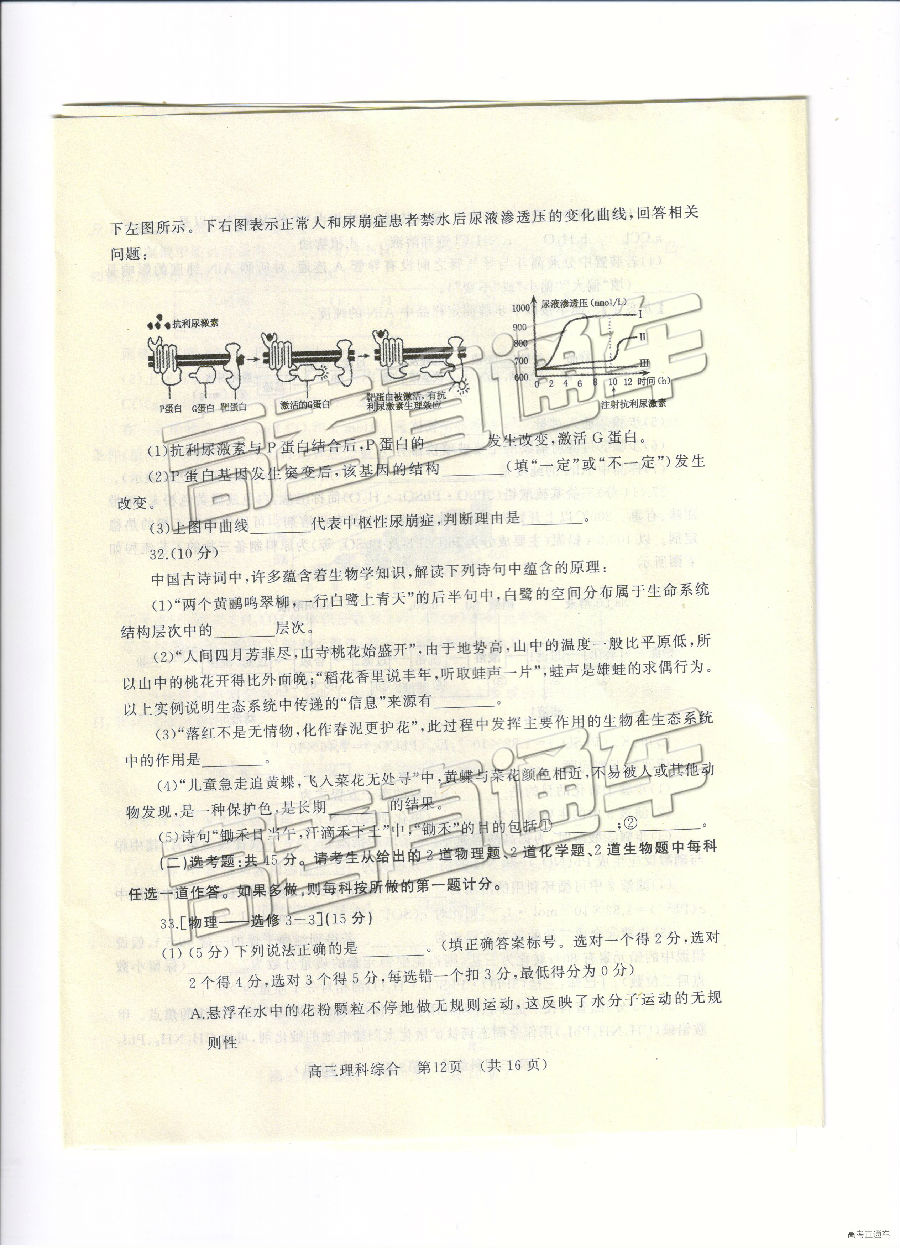 下左图所示。下右图表示正常人和尿崩症患者禁水后尿液渗透压的变化曲线,回答相关
问题:
抗利尿激素
P蛋白 G蛋白 靶蛋白
激活的G蛋白
靶蛋白被激活,有抗
利尿激素生理效应
尿液渗透压(mmol/L)
1000
900
800
700
600
I
II
III
0 2 4 6 8 10 12 时间(h)
注射抗利尿激素
(1)抗利尿激素与P蛋白结合后,P蛋白的______发生改变,激活G蛋白。
(2)P蛋白基因发生突变后,该基因的结构______(填“一定”或“不一定”)发生
改变。
(3)上图中曲线______代表中枢性尿崩症,判断理由是______。
32.(10分)
中国古诗词中,许多蕴含着生物学知识,解读下列诗句中蕴含的原理:
(1)“两个黄鹂鸣翠柳,一行白鹭上青天”的后半句中,白鹭的空间分布属于生命系统
结构层次中的______层次。
(2)“人间四月芳菲尽,山寺桃花始盛开”,由于地势高,山中的温度一般比平原低,所
以山中的桃花开得比外面晚;“稻花香里说丰年,听取蛙声一片”,蛙声是雄蛙的求偶行为。
以上实例说明生态系统中传递的“信息”来源有______。
(3)“落红不是无情物,化作春泥更护花”,此过程中发挥主要作用的生物在生态系统
中的作用是______。
(4)“儿童急走追黄蝶,飞入菜花无处寻”中,黄蝶与菜花颜色相近,不易被人或其他动
物发现,是一种保护色,是长期______的结果。
(5)诗句“锄禾日当午,汗滴禾下土”中,“锄禾”的目的包括①______;②______。
(二)选考题:共45分。请考生从给出的2道物理题、2道化学题、2道生物题中每科
任选一道作答。如果多做,则每科按所做的第一题计分。
33.[物理——选修3-3](15分)
(1)(5分)下列说法正确的是______。(填正确答案标号。选对一个得2分,选对
2个得4分,选对3个得5分,每选错一个扣3分,最低得分为0分)
A.悬浮在水中的花粉颗粒不停地做无规则运动,这反映了水分子运动的无规
则性
高三理科综合 第12页 (共16页)
高考直通车
高考直通车
高考直通车